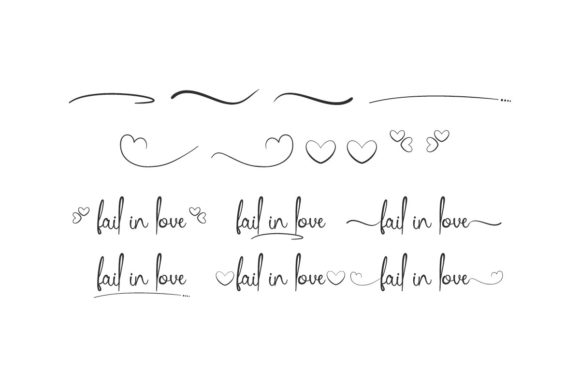 fail in love fail in love fail in love
fail in love fail in love fail in love